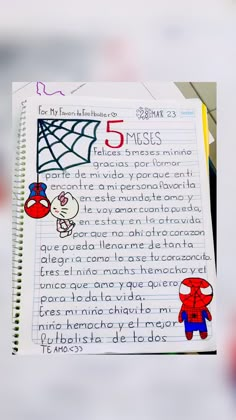 For My Favorite Footballer♡
28 MAR 23
5
MESES
Felices 5 meses mi niño
gracias por formar
parte de mi vida y porque enti
encontre a mi persona favorita
en este mundo, te amo y
te voy amar cuanto pueda,
en esta y en la otra vida
porque no ahi otro corazon
que pueda llenarme de tanta
alegria como lo ase tu corazoncito.
Eres el niño machs hemocho y el
unico que amo y que quiero
para toda la vida.
Eres mi niño chiquito mi
niño hemocho y el mejor
futbolista de todos
TE AMO<33